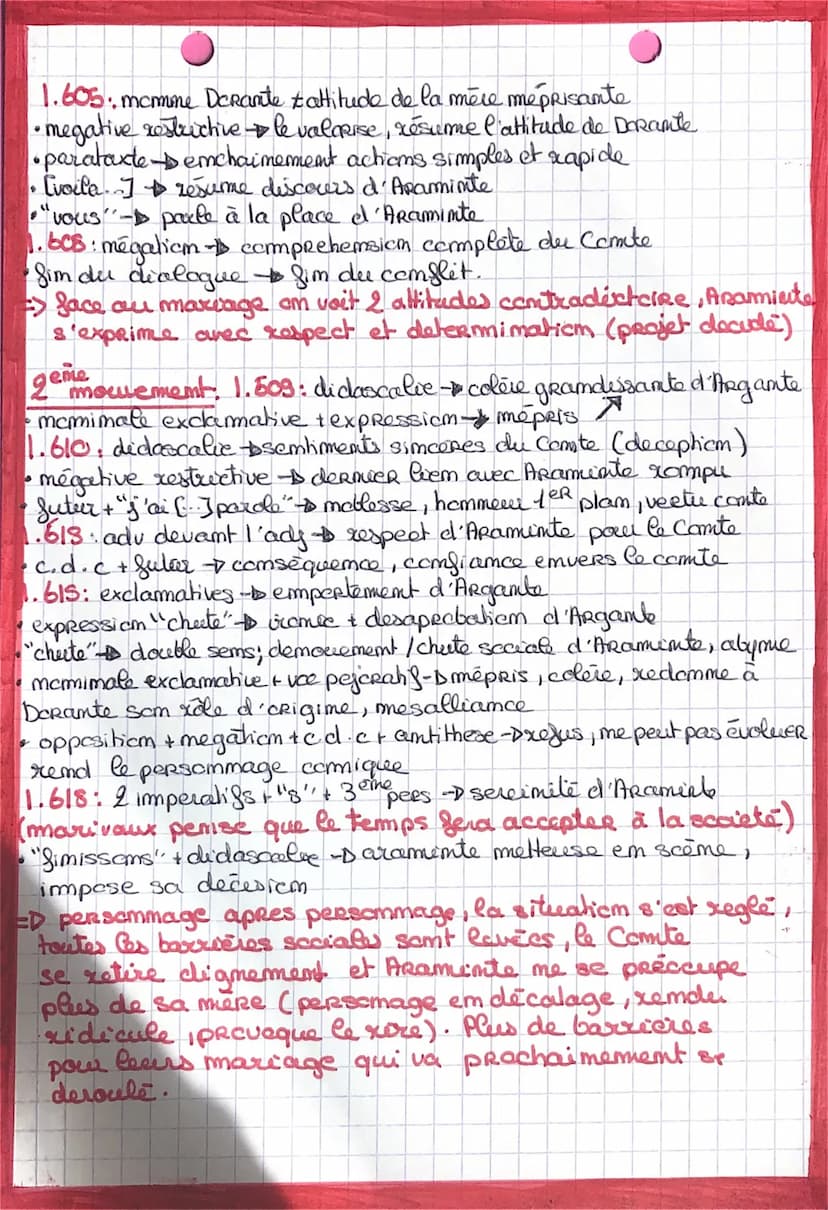 l.605: nomme Dorante ≠ attitude de la mère méprisante
• negative restrictive → le valorise, résume l'attitude de Dorante
• parataxte → enchainement actions simples et rapide
• [voila...] → résume discours d'Araminte
• "vous" → parle à la place d'Araminte
l.608: négation → comprehension complète du Comte
• fin du dialogue → fin du conflit.
=> face au mariage on voit 2 attitudes contradictoire, Araminte
s'exprime avec respect et determination (projet decidé)
2eme mouvement. l.609: didascalie → colère grandissante d'Argante ↗
• nominale exclamative + expression → mépris
l.610: didascalie → sentiments sincères du Comte (deception)
• négative restrictive → dernier lien avec Araminte rompu
• futur + "j'ai [...] parole" → noblesse, honneur 1er plan, vertu comte
l.613: adv devant l'adj → respect d'Araminte pour le Comte
• c.d.c + futur → conséquence, confiance envers le comte
l.615: exclamatives → emportement d'Argante
• expression "chute" → ironie + desaprobation d'Argante
• "chute" → double sens; denouement / chute sociale d'Araminte, abyme
• nominale exclamative + voc pejoratif → mépris, colère, redonne à
Dorante son rôle d'origine, mesalliance
• opposition + negation + c.d.c + antithese → refus, ne peut pas évoluer
rend le personnage comique
l.618: 2 imperatifs + "s" + 3eme pers → sereinité d'Araminte
(marivaux pense que le temps fera accepter à la société)
• "finissons" + didascalie → araminte metteuse en scène,
impose sa décésion
=> personnage apres personnage, la situation s'est reglé,
toutes les barrières sociales sont levées, le Comte
se retire dignement et Araminte ne se préccupe
plus de sa mère (personage en décalage, rendu
ridicule, provoque le rire). Plus de barrieres
pour leurs mariage qui va prochainement se
deroulé.